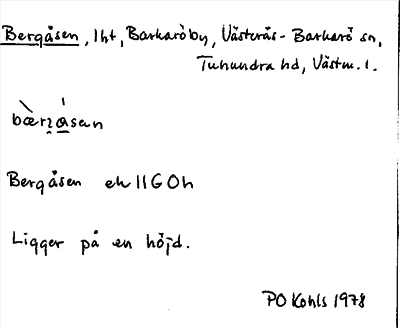 Bergåsen, lht, Barkaröby, Västerås-Barkarö sn,
Tuhundra hd, Västm. l.
Bergåsen ek 11G0h
Ligger på en höjd.
PO Kohls 1978